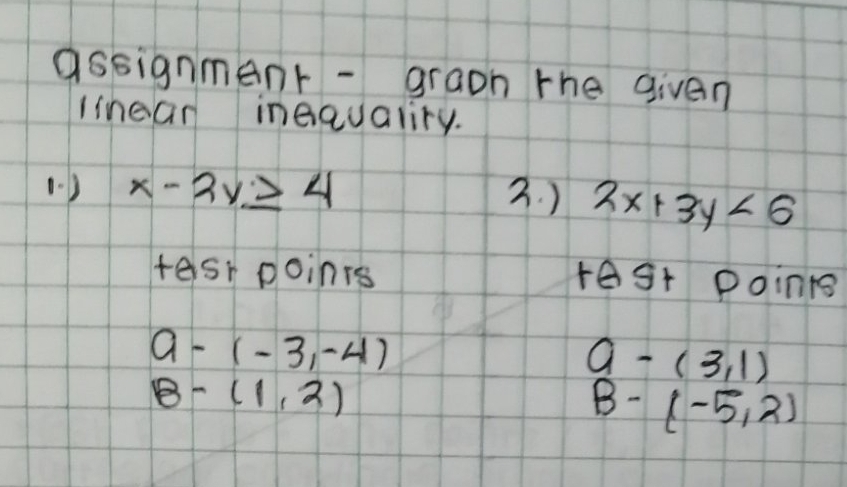 assignment - graph the given
linear inequality.
1.) x - 2y ≥ 4
2.) 2x + 3y < 6
test points
a - (-3,-4)
B - (1,2)
test points
a - (3,1)
B - (-5,2)